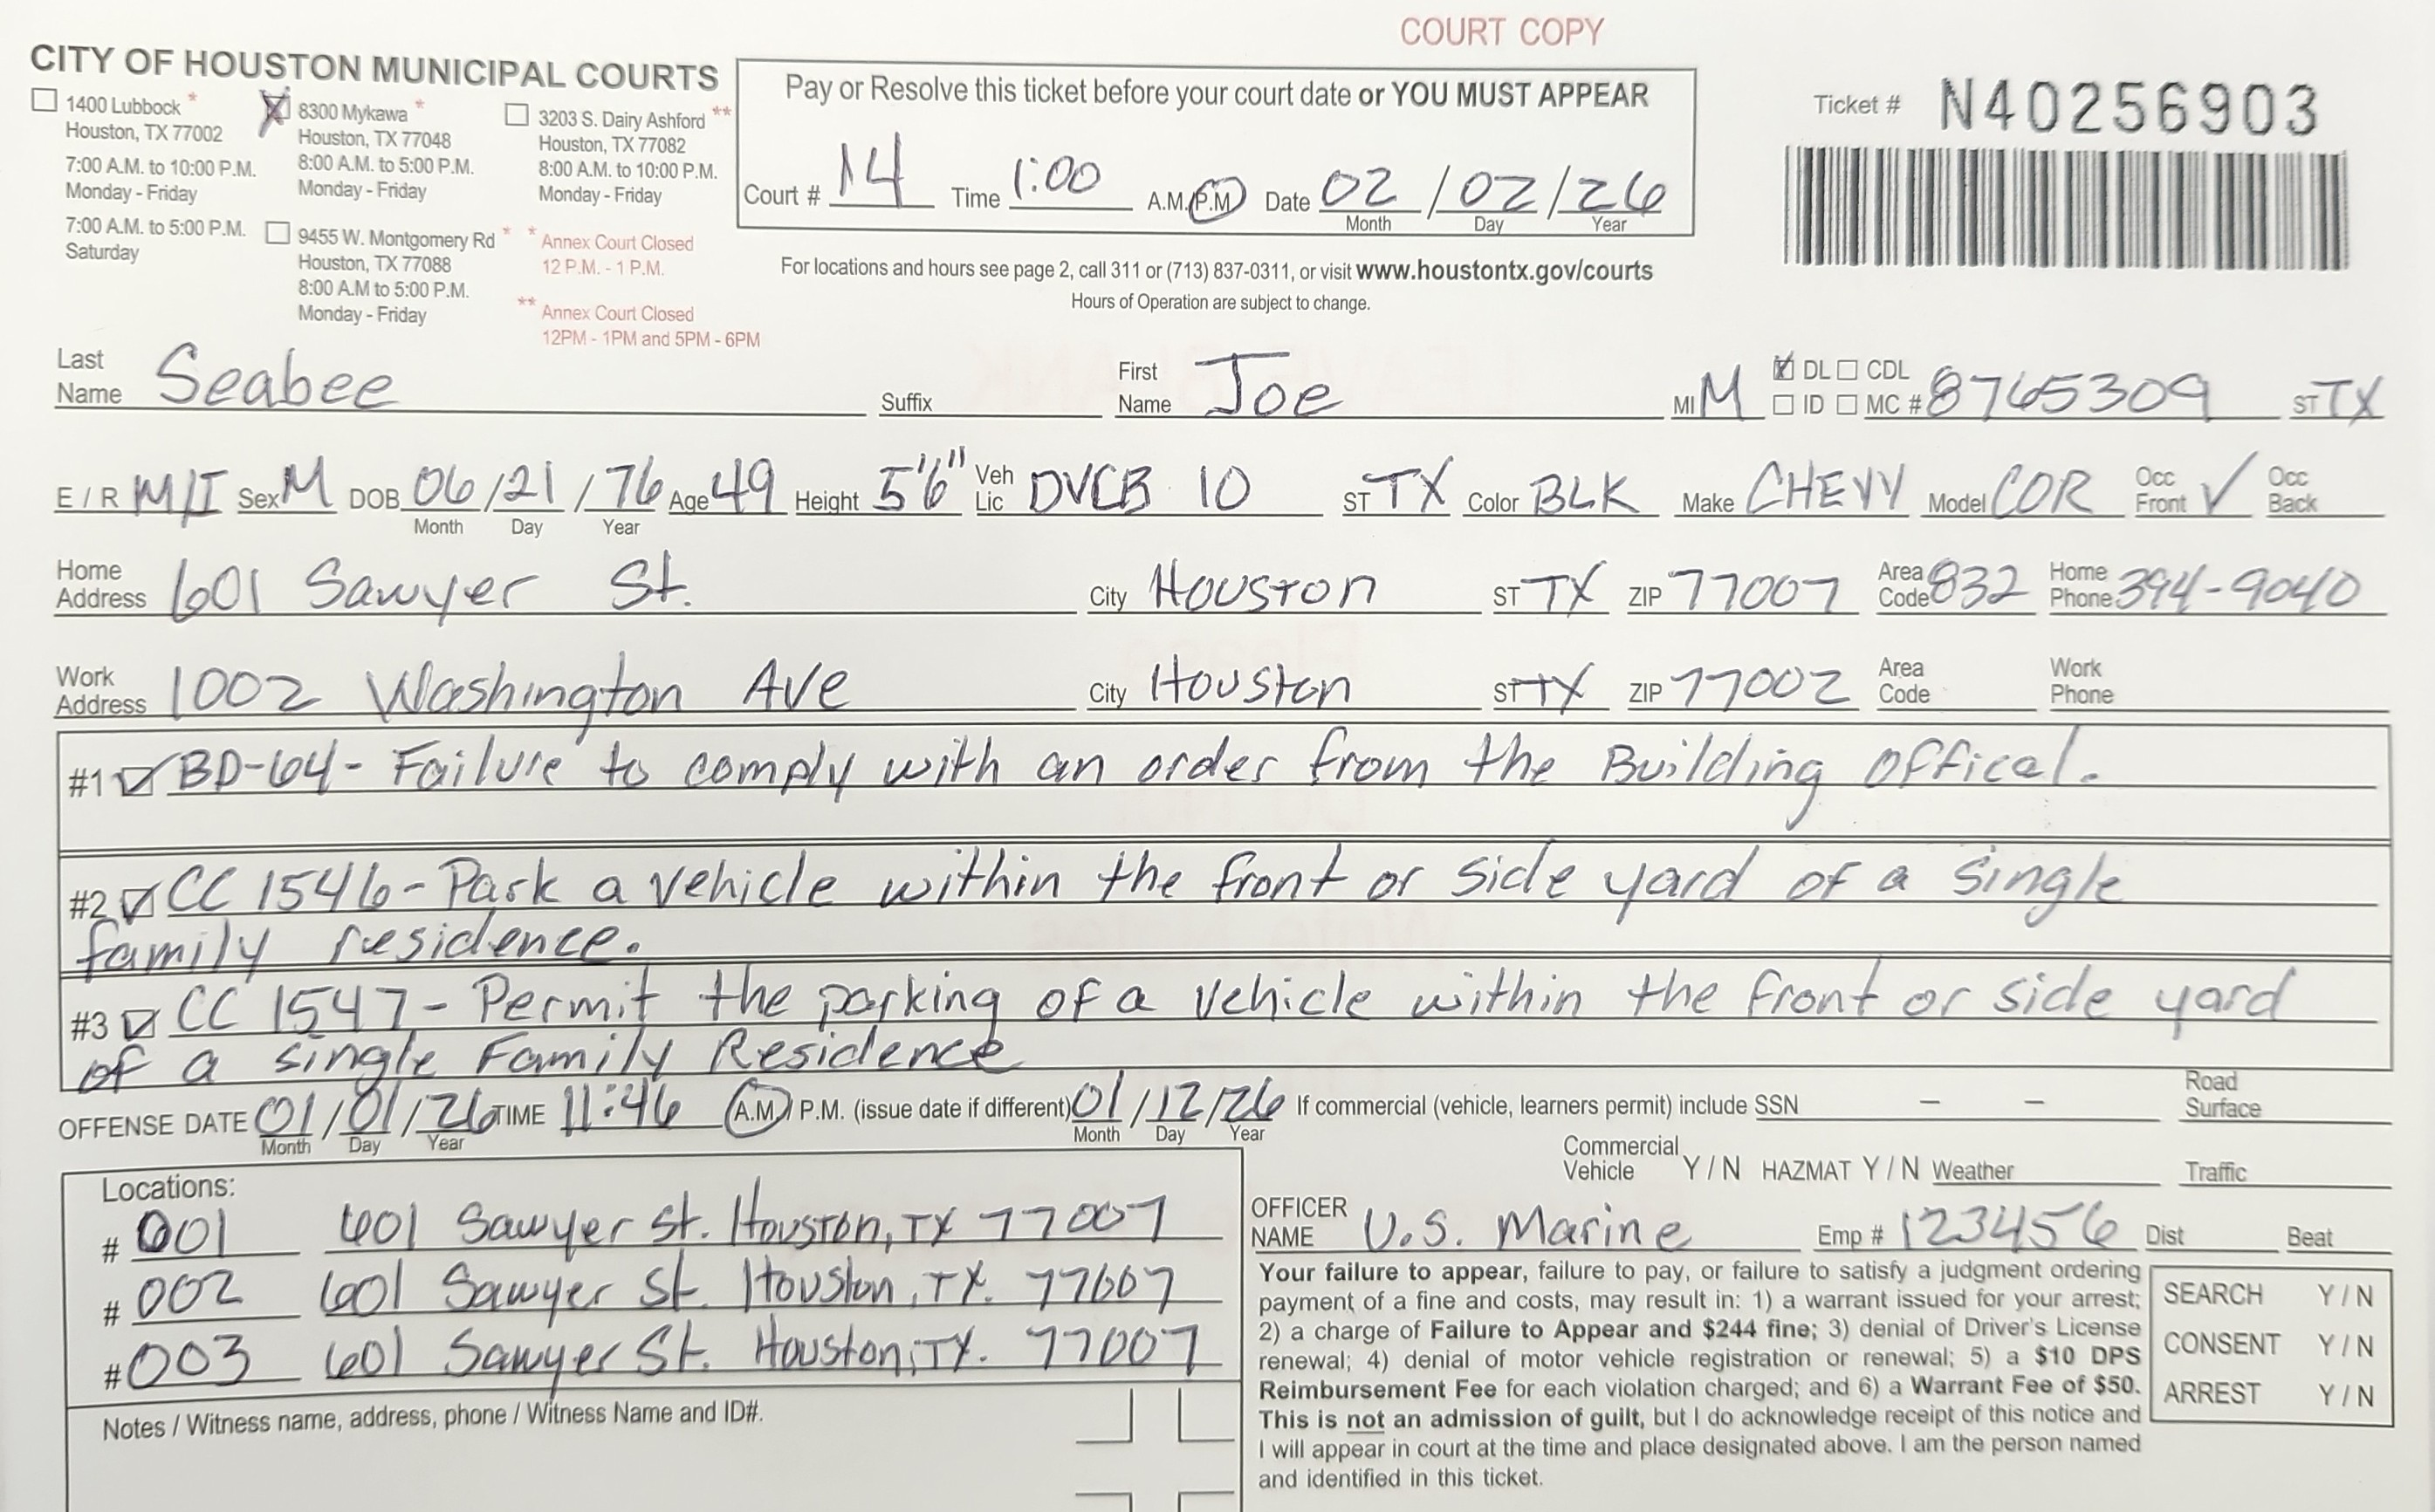 COURT COPY
CITY OF HOUSTON MUNICIPAL COURTS
1400 Lubbock *
Houston, TX 77002
7:00 A.M. to 10:00 P.M.
Monday - Friday
7:00 A.M. to 5:00 P.M.
Saturday
8300 Mykawa *
Houston, TX 77048
8:00 A.M. to 5:00 P.M.
Monday - Friday
9455 W. Montgomery Rd *
Houston, TX 77088
8:00 A.M to 5:00 P.M.
Monday - Friday
3203 S. Dairy Ashford **
Houston, TX 77082
8:00 A.M. to 10:00 P.M.
Monday - Friday
* Annex Court Closed
12 P.M. - 1 P.M.
** Annex Court Closed
12PM - 1PM and 5PM - 6PM
Pay or Resolve this ticket before your court date or YOU MUST APPEAR
Court # 14 Time 1:00 A.M./P.M Date 02 / 02 / 26
Month Day Year
For locations and hours see page 2, call 311 or (713) 837-0311, or visit www.houstontx.gov/courts
Hours of Operation are subject to change.
Ticket # N40256903
Last Name Seabee Suffix First Name Joe MI M DL CDL ID MC # 8765309 ST TX
E / R M/I Sex M DOB 06 / 21 / 76 Age 49 Height 5'6" Veh Lic DVCB 10 ST TX Color BLK Make CHEVY Model COR Occ Front ✓ Occ Back
Month Day Year
Home Address 601 Sawyer St. City Houston ST TX ZIP 77007 Area Code 832 Home Phone 394-9040
Work Address 1002 Washington Ave City Houston ST TX ZIP 77002 Area Code Work Phone
#1 BD-64- Failure to comply with an order from the Building offical.
#2 CC 1546- Park a vehicle within the front or side yard of a single
family residence.
#3 CC 1547- Permit the parking of a vehicle within the front or side yard
of a single Family Residence
OFFENSE DATE 01 / 01 / 26 TIME 11:46 A.M / P.M. (issue date if different) 01 / 12 / 26 If commercial (vehicle, learners permit) include SSN - - Road Surface
Month Day Year Month Day Year
Commercial Vehicle Y / N HAZMAT Y / N Weather Traffic
Locations:
# 001 601 Sawyer St. Houston, TX 77007
# 002 601 Sawyer St. Houston, TX. 77007
# 003 601 Sawyer St. Houston, TX. 77007
Notes / Witness name, address, phone / Witness Name and ID#.
OFFICER NAME U.S. Marine Emp # 123456 Dist Beat
Your failure to appear, failure to pay, or failure to satisfy a judgment ordering
payment of a fine and costs, may result in: 1) a warrant issued for your arrest;
2) a charge of Failure to Appear and $244 fine; 3) denial of Driver's License
renewal; 4) denial of motor vehicle registration or renewal; 5) a $10 DPS
Reimbursement Fee for each violation charged; and 6) a Warrant Fee of $50.
This is not an admission of guilt, but I do acknowledge receipt of this notice and
I will appear in court at the time and place designated above. I am the person named
and identified in this ticket.
SEARCH Y / N
CONSENT Y / N
ARREST Y / N